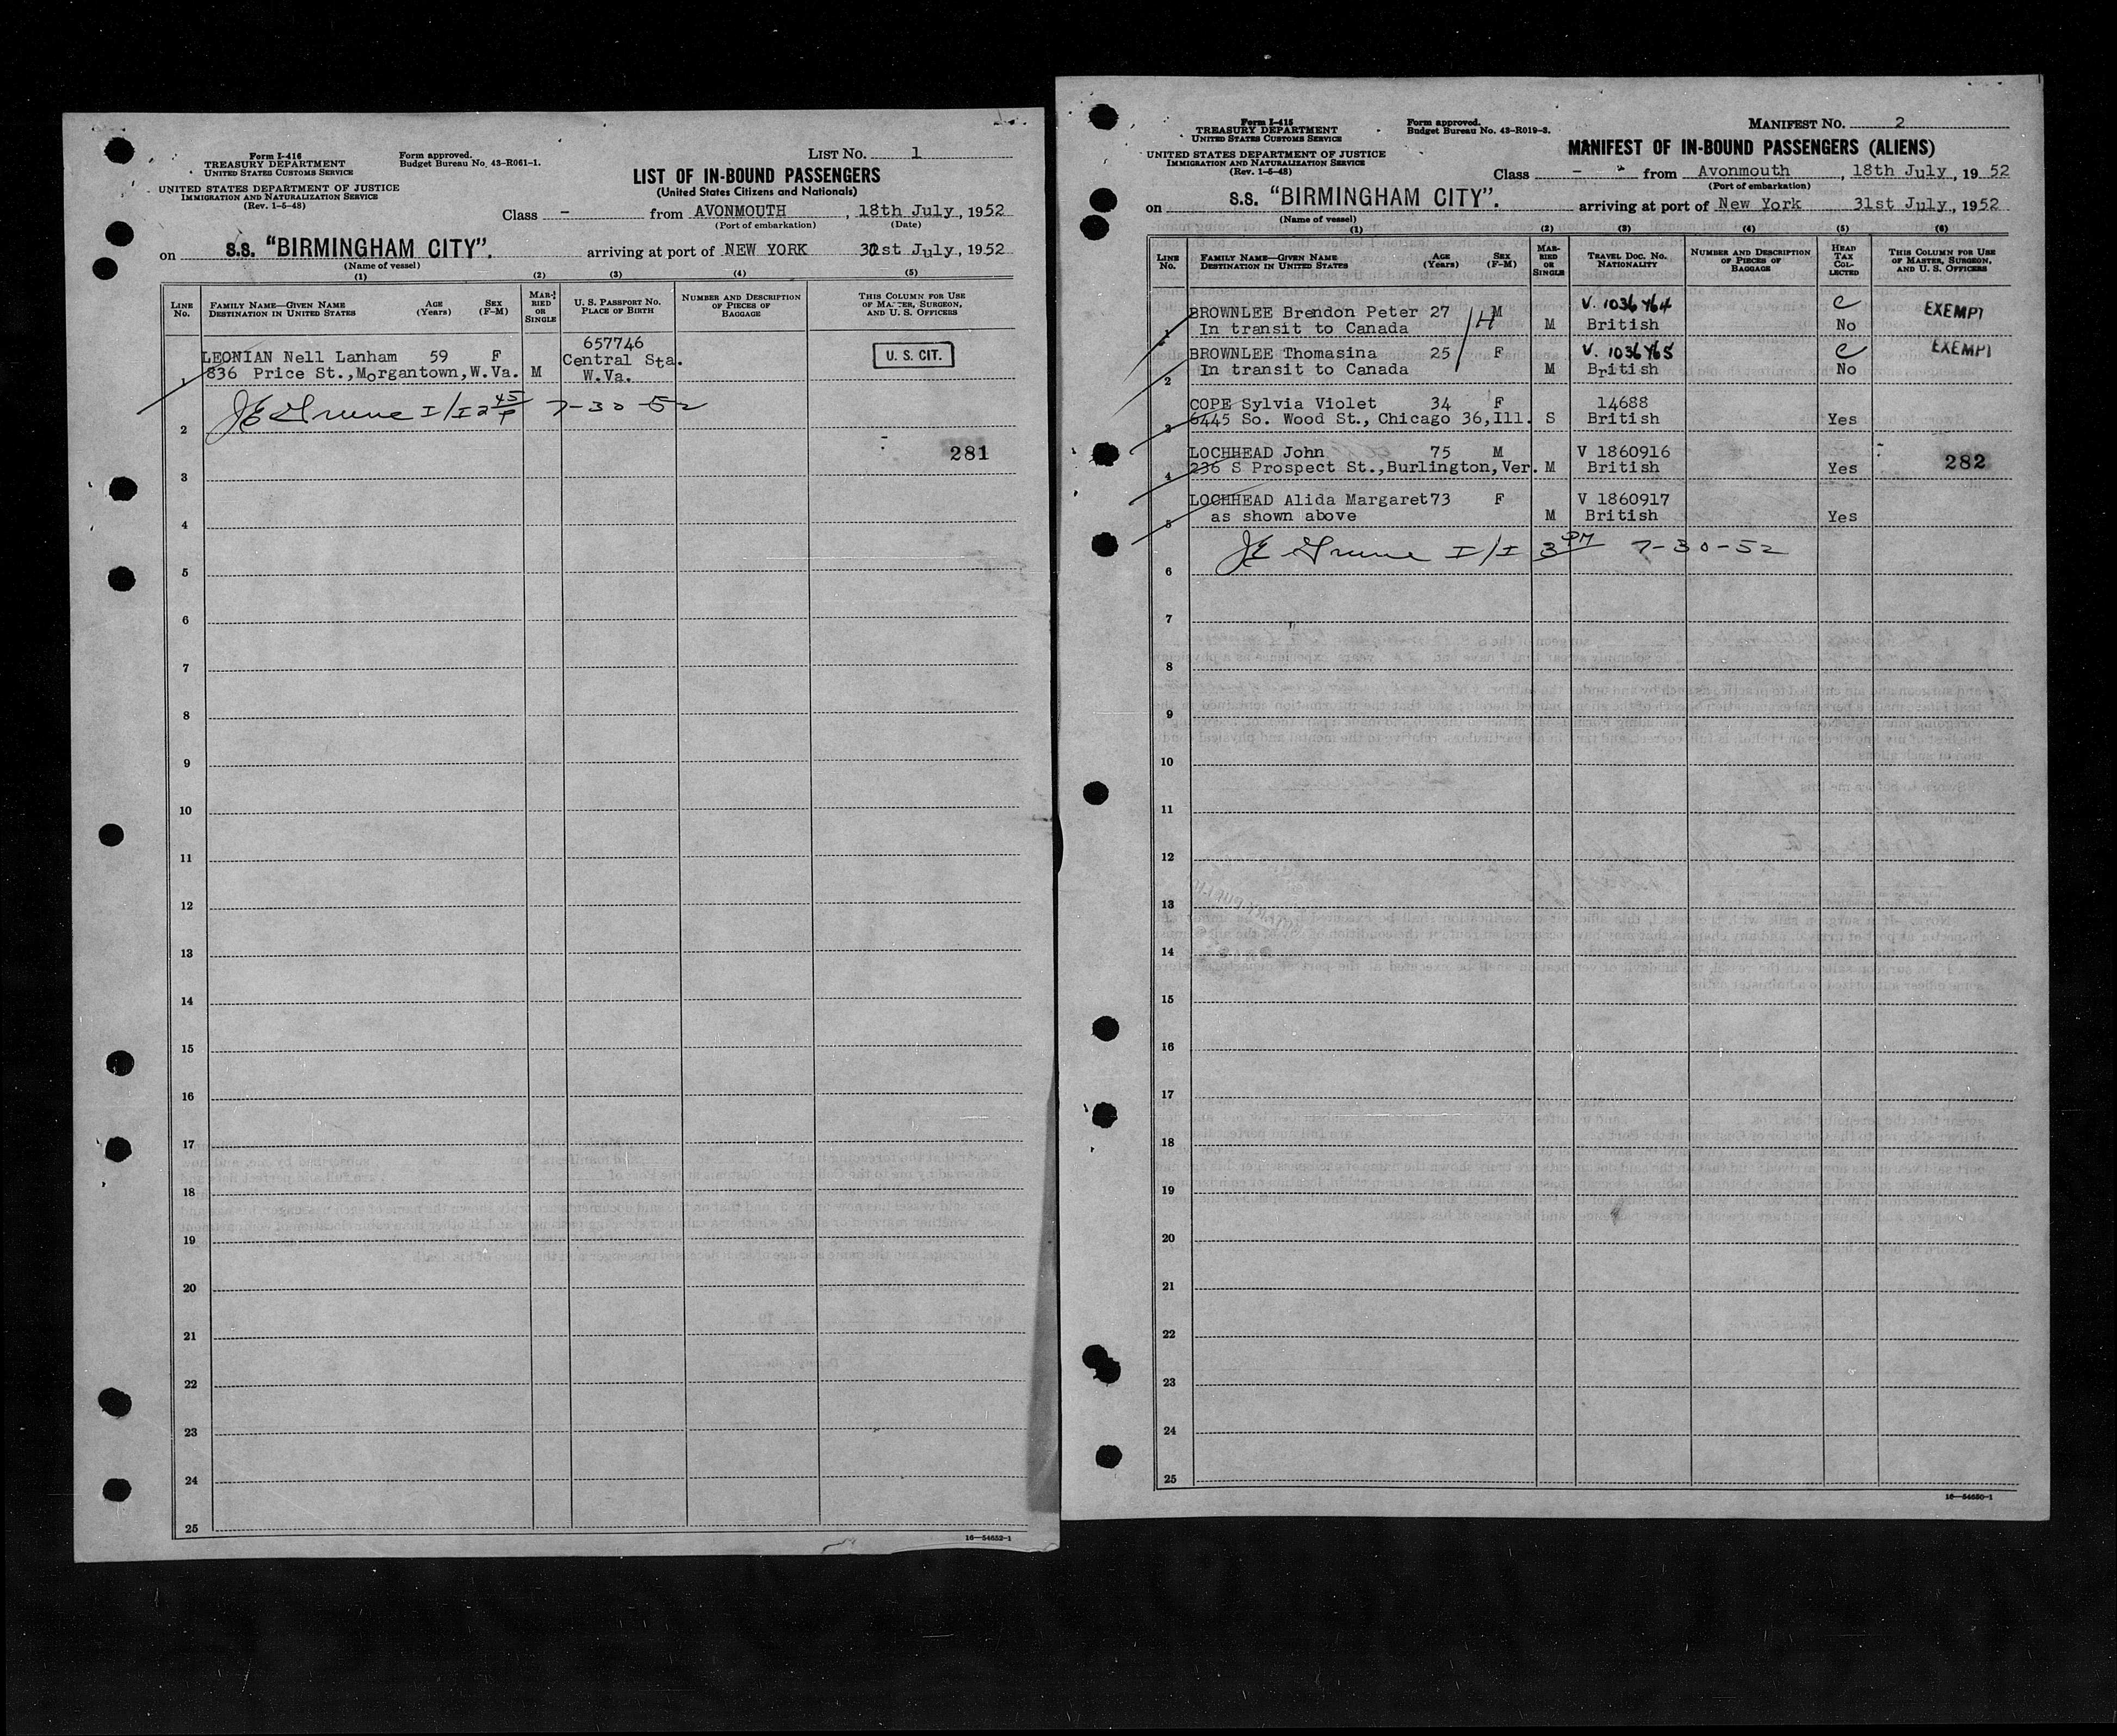 Form I-416
TREASURY DEPARTMENT
UNITED STATES CUSTOMS SERVICE
Form approved.
Budget Bureau No. 43-R061-1.
LIST No. 1
UNITED STATES DEPARTMENT OF JUSTICE
IMMIGRATION AND NATURALIZATION SERVICE
(Rev. 1-5-48)
LIST OF IN-BOUND PASSENGERS
(United States Citizens and Nationals)
Class - from AVONMOUTH, 18th July, 1952
(Port of embarkation) (Date)
on S.S. "BIRMINGHAM CITY". arriving at port of NEW YORK 31st July, 1952
(Name of vessel)
(1) (2) (3) (4) (5)
LINE No. FAMILY NAME—GIVEN NAME DESTINATION IN UNITED STATES AGE (Years) SEX (F-M) MARRIED OR SINGLE U. S. PASSPORT No. PLACE OF BIRTH NUMBER AND DESCRIPTION OF PIECES OF BAGGAGE THIS COLUMN FOR USE OF MASTER, SURGEON, AND U. S. OFFICERS
657746
LEONIAN Nell Lanham 59 F Central Sta. U. S. CIT.
1 836 Price St.,Morgantown,W.Va. M W.Va.
I/I 2 45/P 7-30-52
2
281
3
4
5
6
7
8
9
10
11
12
13
14
15
16
17
18
19
20
21
22
23
24
25
16—54652-1
Form I-415
TREASURY DEPARTMENT
UNITED STATES CUSTOMS SERVICE
Form approved.
Budget Bureau No. 43-R019-3.
MANIFEST No. 2
UNITED STATES DEPARTMENT OF JUSTICE
IMMIGRATION AND NATURALIZATION SERVICE
(Rev. 1-5-48)
MANIFEST OF IN-BOUND PASSENGERS (ALIENS)
Class - from Avonmouth, 18th July, 1952
(Port of embarkation)
on S.S. "BIRMINGHAM CITY". arriving at port of New York 31st July, 1952
(Name of vessel)
(1) (2) (3) (4) (5) (6)
LINE No. FAMILY NAME—GIVEN NAME DESTINATION IN UNITED STATES AGE (Years) SEX (F-M) MARRIED OR SINGLE TRAVEL DOC. No. NATIONALITY NUMBER AND DESCRIPTION OF PIECES OF BAGGAGE HEAD TAX COLLECTED THIS COLUMN FOR USE OF MASTER, SURGEON, AND U. S. OFFICERS
BROWNLEE Brendon Peter 27 M V. 1036464 C EXEMPT
1 In transit to Canada M British No
BROWNLEE Thomasina 25 F V. 1036465 C EXEMPT
2 In transit to Canada M British No
COPE Sylvia Violet 34 F 14688
3 6445 So. Wood St., Chicago 36,Ill. S British Yes
LOCHHEAD John 75 M V 1860916
4 236 S Prospect St.,Burlington,Ver. M British Yes 282
LOCHHEAD Alida Margaret 73 F V 1860917
5 as shown above M British Yes
I/I 3 PM 7-30-52
6
7
8
9
10
11
12
13
14
15
16
17
18
19
20
21
22
23
24
25
16—54650-1